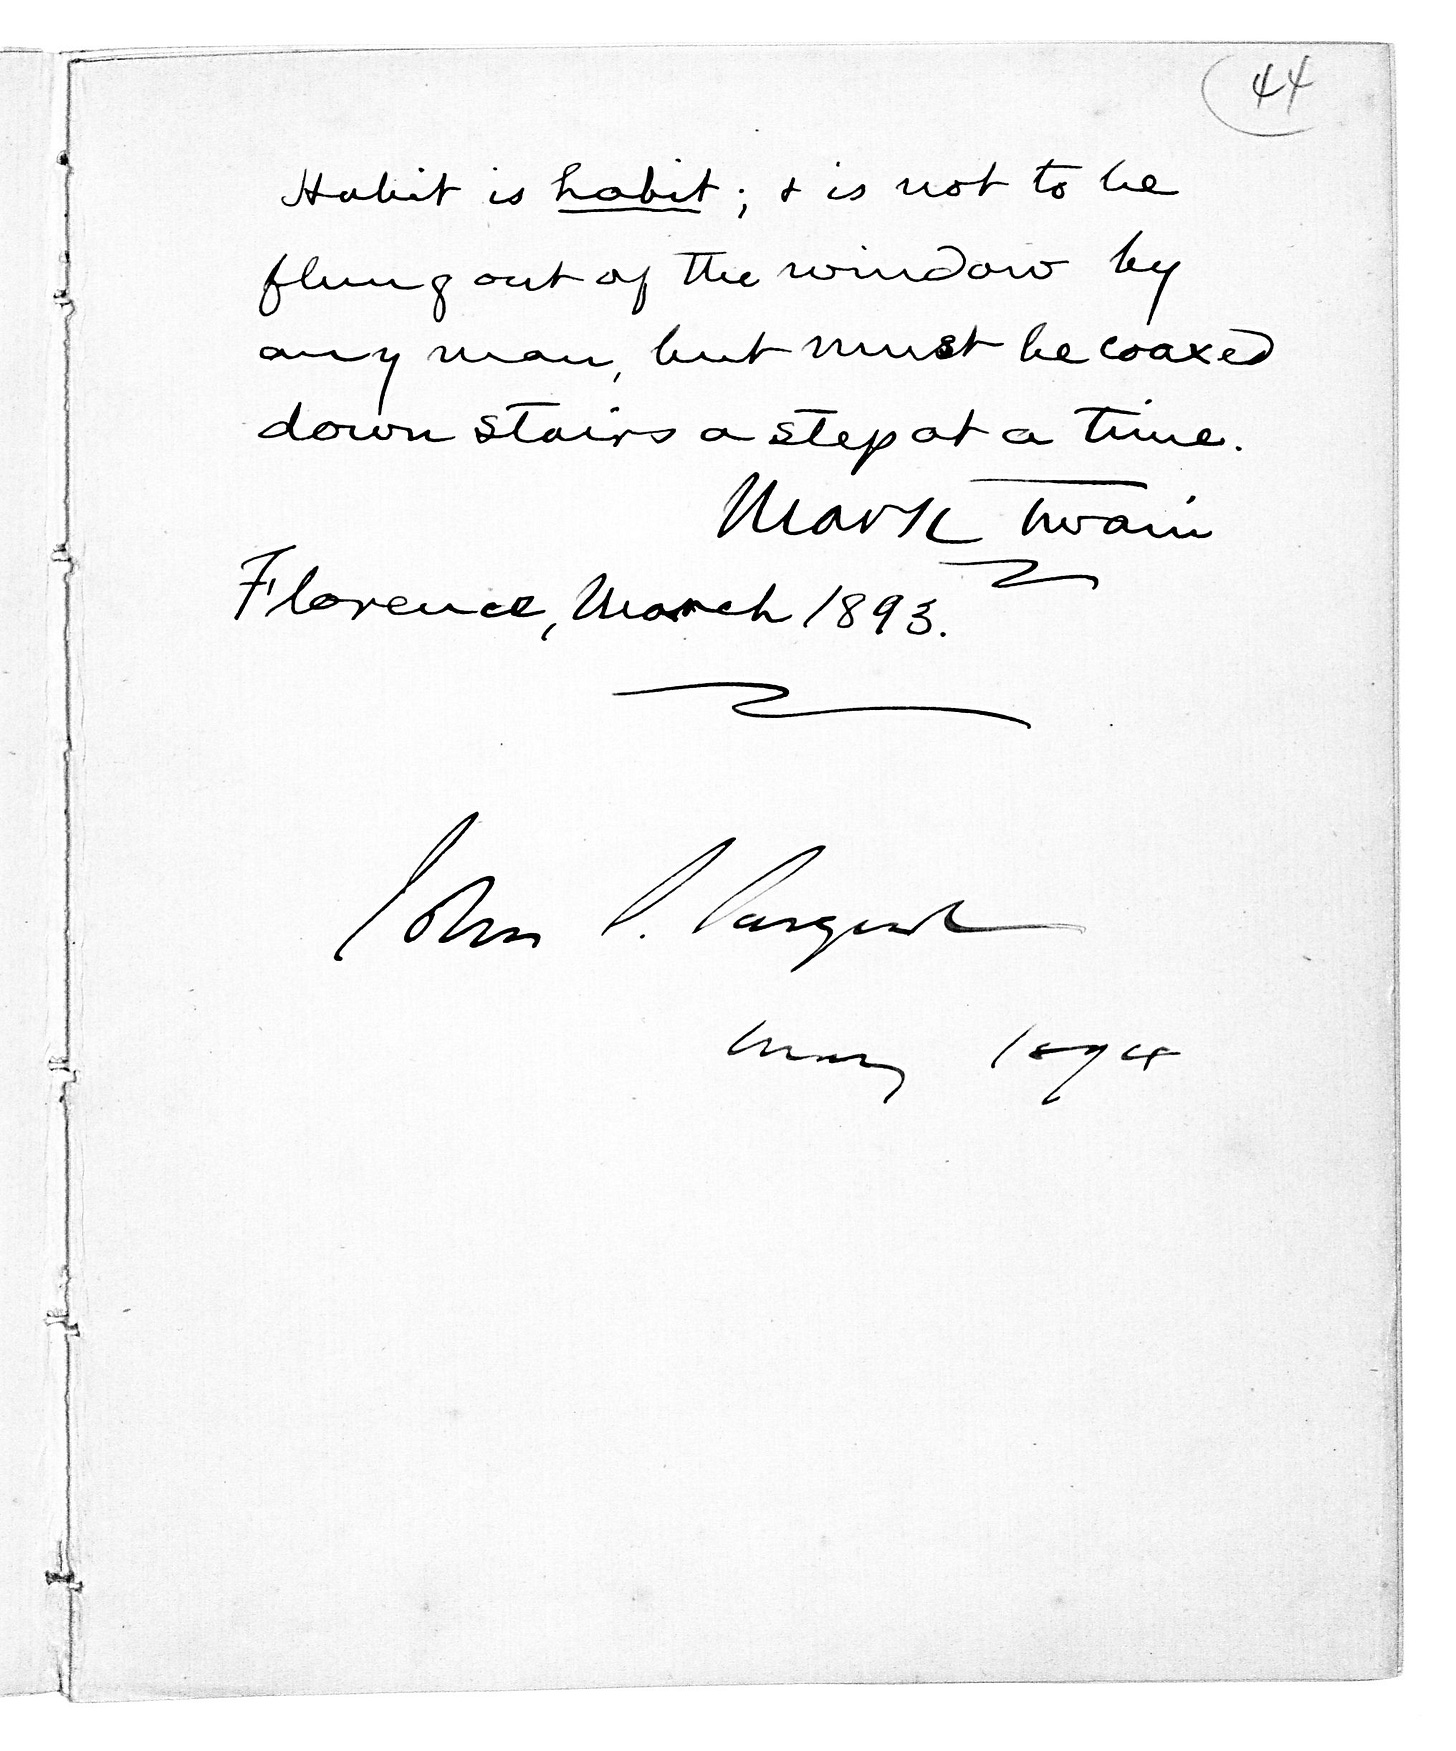 44
Habit is habit; & is not to be
flung out of the window by
any man, but must be coaxed
down stairs a step at a time.
Mark Twain
Florence, March 1893.
John S. Sargent
May 1894